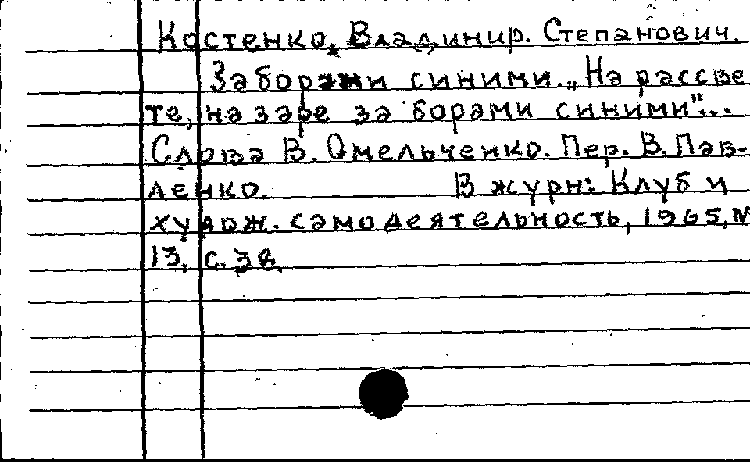 Костенко, Владимир. Степанович.
За борами синими. „На рассве
те, на заре за борами синими"...
Слова В. Омельченко. Пер. В. Пав-
ленко. В журн: Клуб и
худож. самодеятельность, 1965, N
13, с. 38.